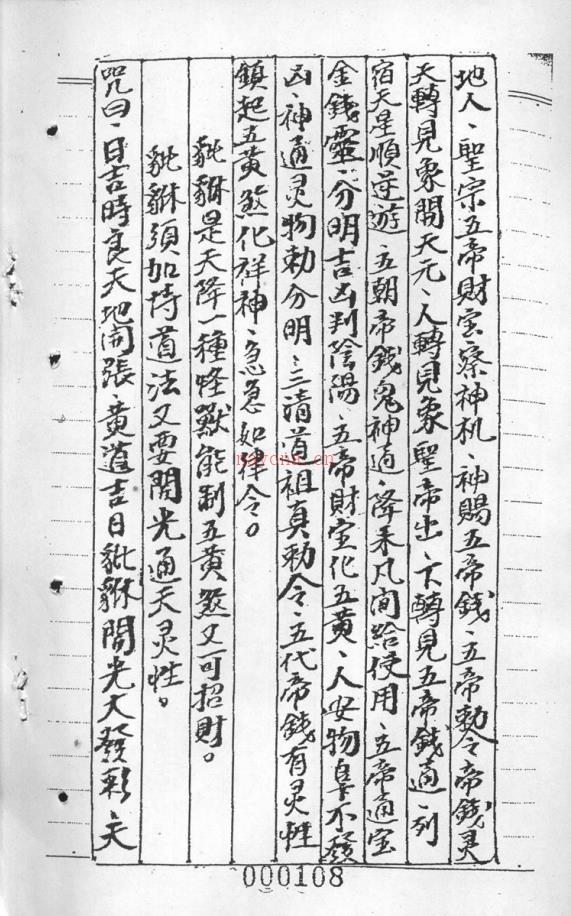 地人、聖宗五帝財宝察神机、神賜五帝錢、五帝勅令帝錢灵
天轉見象開天元、人轉見象聖帝出、下轉見五帝錢通、列
宿天星順逆遊、五朝帝錢鬼神通、降来凡间給使用、五帝通宝
金錢靈、分明吉凶判陰陽、五帝財宝化五黄、人安物阜不發
凶、神通灵物勅分明、三清道祖真勅令、五代帝錢有灵性
鎮起五黄煞化祥神、急急如律令。
貔貅是天降一種怪獸能制五黄煞又可招財。
貔貅須加持道法又要開光通天灵性。
咒曰、日吉時良天地開張、黄道吉日貔貅開光大發彩、天
nayona.cn
000108